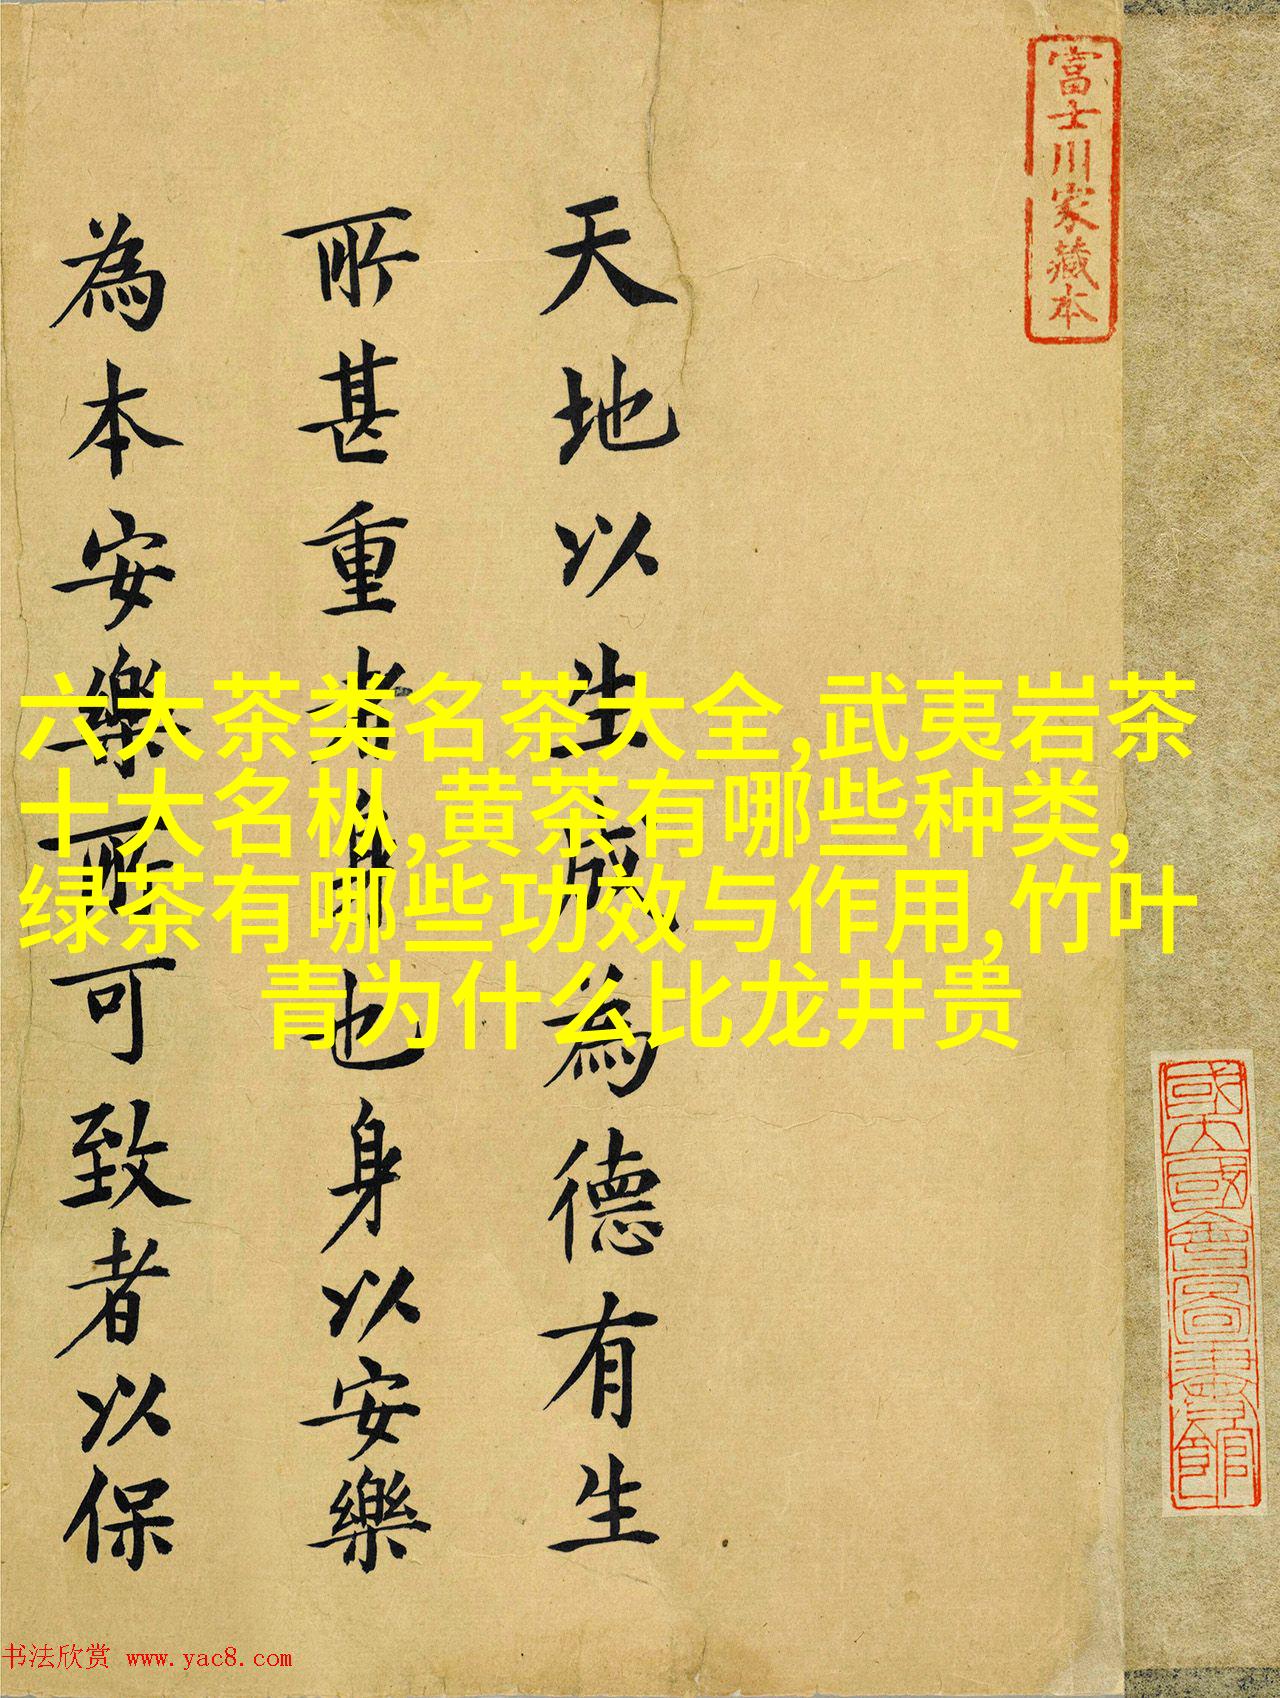 富士川家藏本
天地以生成為德有生
所甚重者身也身以安樂
為本安樂所可致者以保
六大茶类名茶大全,武夷岩茶
十大名枞,黄茶有哪些种类,
绿茶有哪些功效与作用,竹叶
青为什么比龙井贵
國立國會圖書館
书法欣赏 www.yac8.com